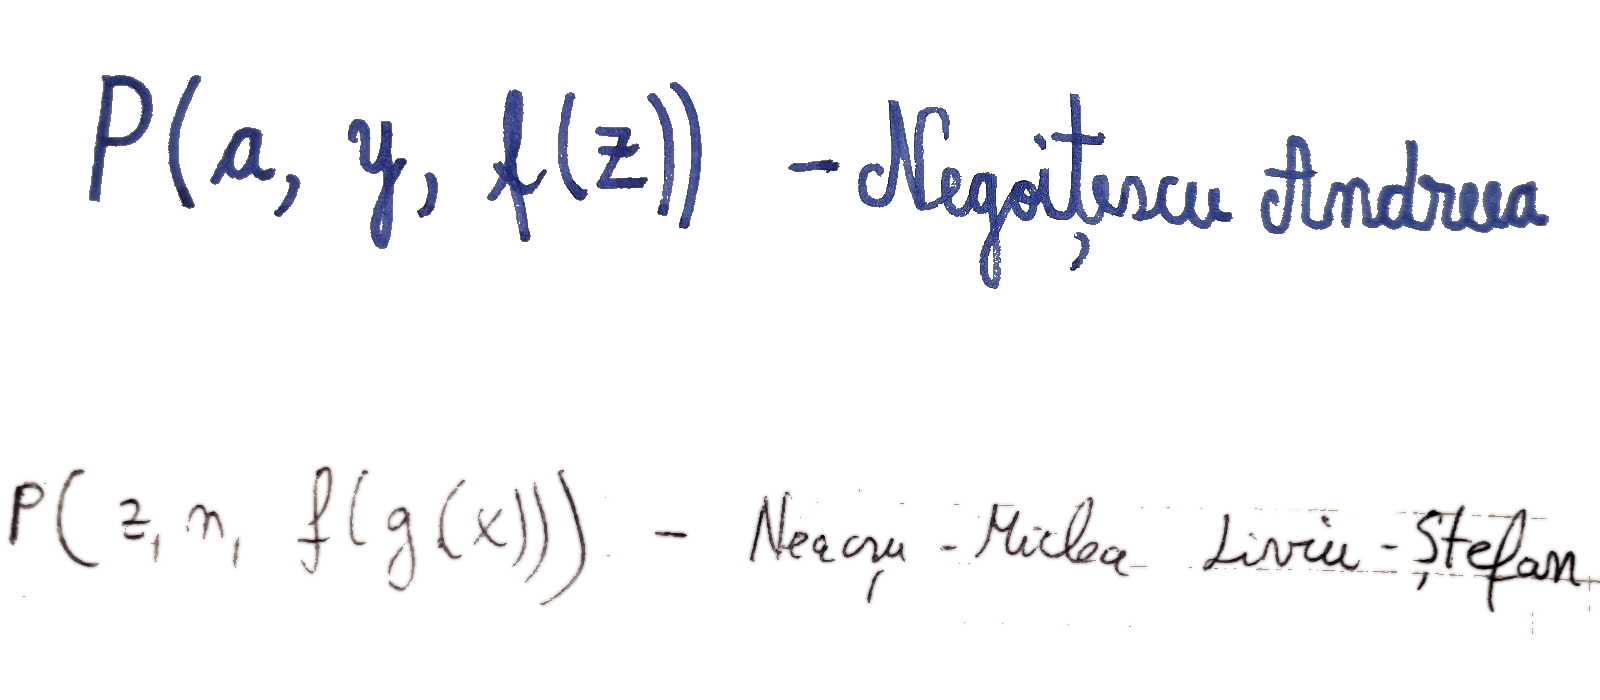 P(a, y, f(z)) - Negoițescu Andreea
P(z, n, f(g(x))) - Neacșu - Miclea Liviu - Ștefan